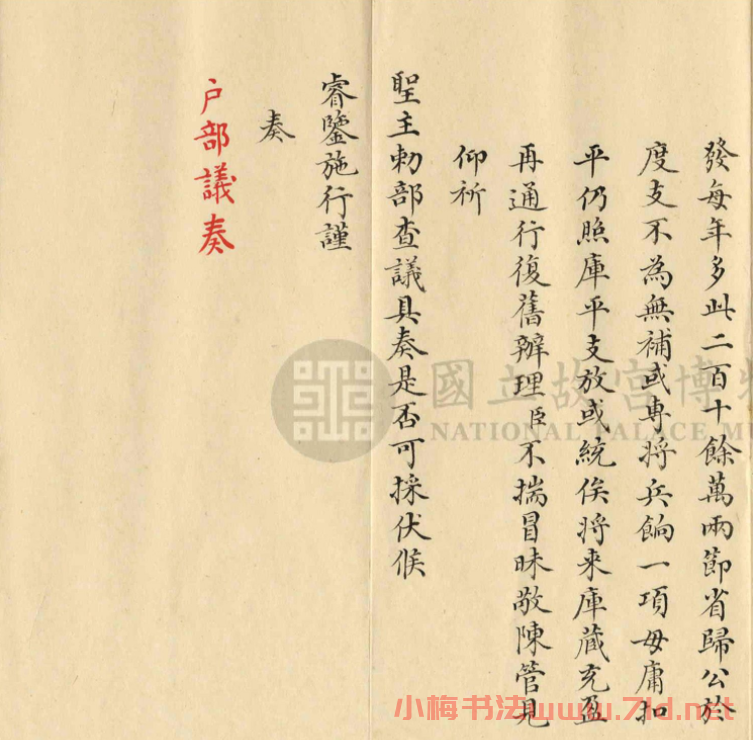 發每年多此二百十餘萬兩節省歸公於
度支不為無補或專將兵餉一項毋庸扣
平仍照庫平支放或統俟將來庫藏充盈
再通行復舊辦理臣不揣冒昧敬陳管見
仰祈
聖主勅部查議具奏是否可採伏候
睿鑒施行謹
奏
户部議奏
國立故宮博物
NATIONAL PALACE MU
小梅书法www.7ld.net